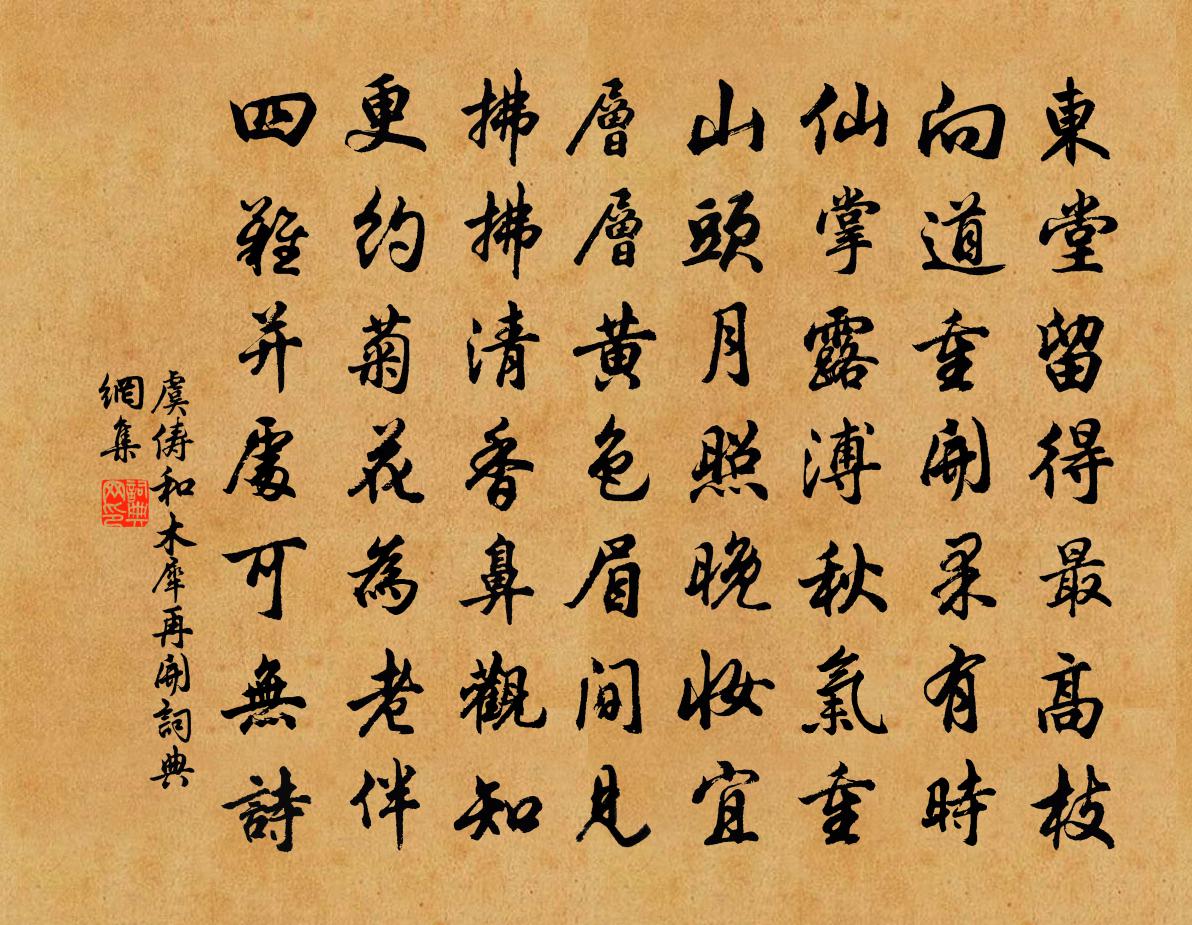 東堂留得最高枝
向道重開果有時
仙掌露漙秋氣重
山頭月照晚妝宜
層層黃色眉間見
拂拂清香鼻觀知
更約菊花為老伴
四難并處可無詩
虞儔和木犀再開詞典
網集
詞典
网印